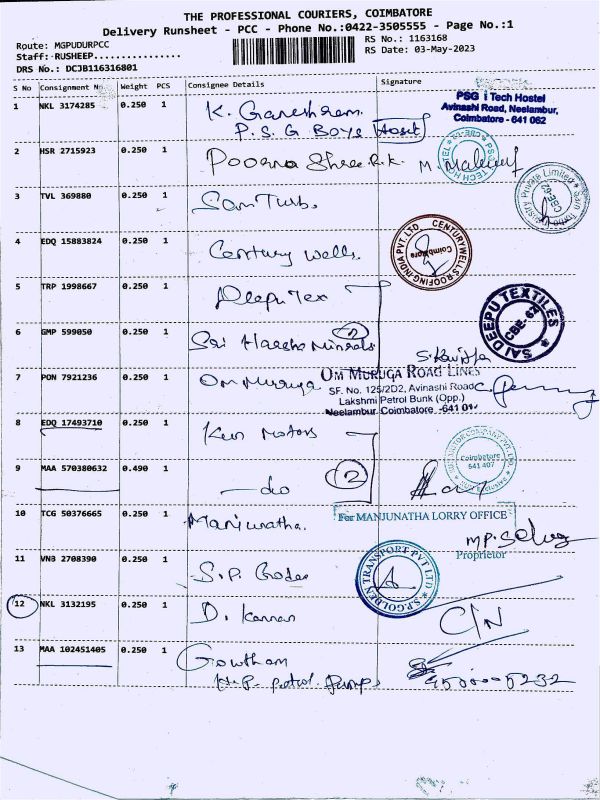 THE PROFESSIONAL COURIERS, COIMBATORE
Delivery Runsheet - PCC - Phone No.:0422-3505555 - Page No.:1
Route: MGPUDURPCC
Staff: RUSHEEP................
DRS No.: DCJB116316801
RS No.: 1163168
RS Date: 03-May-2023
S No Consignment No Weight PCS Consignee Details Signature
1 NKL 3174285 0.250 1 K. Ganeshram
P.S.G Boys Hostel
PSG i Tech Hostel
Avinashi Road, Neelambur,
Coimbatore - 641 062
2 HSR 2715923 0.250 1 Poorna Shree R.K.
PSG
TECH HOSTEL
3 TVL 369880 0.250 1 Sam Turbo
Sam Turbo Industry Private Limited
CBE-62
4 EDQ 15883824 0.250 1 Century wells.
CENTURYWELLS-ROOFING-INDIA PVT LTD
Coimbatore
5 TRP 1998667 0.250 1 Deepu Tex
SAI DEEPU TEXTILES
CBE-62
6 GMP 599050 0.250 1 Sai Harsha Minerals
2
7 PON 7921236 0.250 1 Om Muruga
OM MURUGA ROAD LINES
SF. No. 125/2D2, Avinashi Road
Lakshmi Petrol Bunk (Opp.)
Neelambur Coimbatore -641 01
8 EDQ 17493710 0.250 1 Ken Motors
9 MAA 570380632 0.490 1 —do
2
Coimbatore
641 407
10 TCG 50376665 0.250 1 Manjunatha.
For MANJUNATHA LORRY OFFICE
Proprietor
11 VNB 2708390 0.250 1 S.P. Golden
S.P.GOLDEN TRANSPORT PVT LTD
12 NKL 3132195 0.250 1 D. Kannan C/N
13 MAA 102451405 0.250 1 Gowtham
H.P- petrol Pump